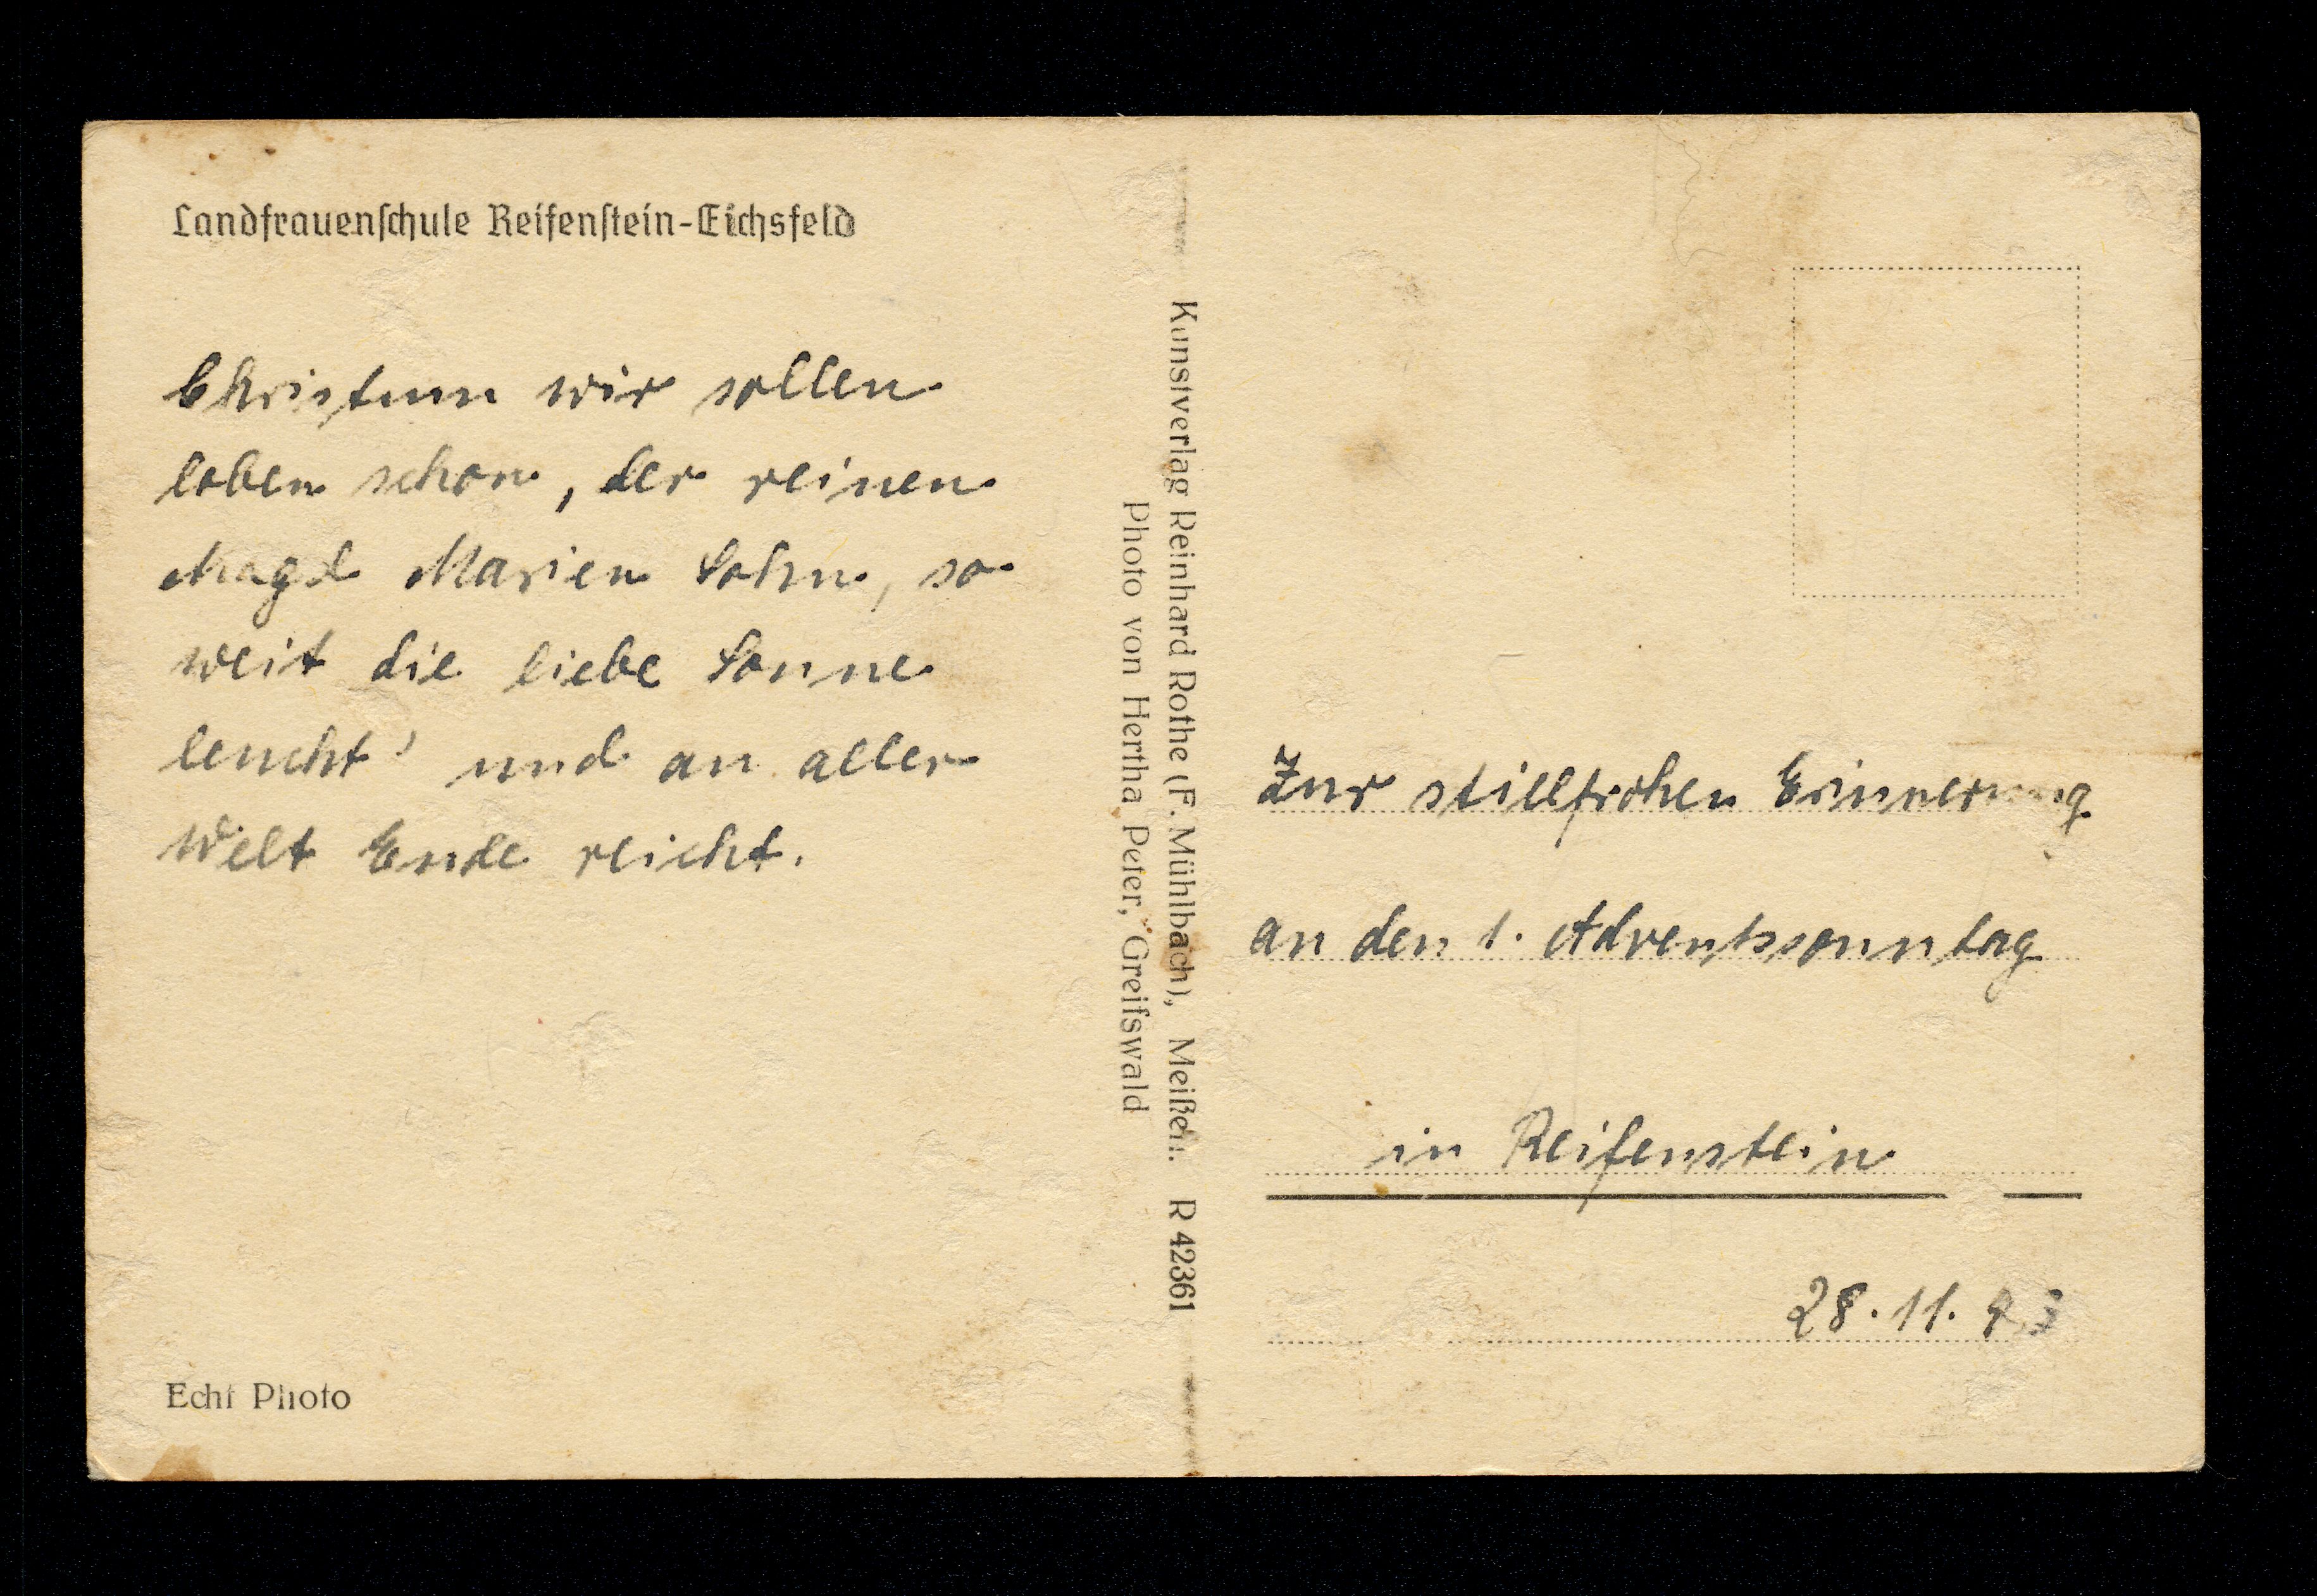 Landfrauenschule Reifenstein-Eichsfeld
Christum wir sollen
loben schon, der reinen
Magd Marien Sohn, so
weit die liebe Sonne
leucht' und an aller
Welt Ende reicht.
Echt Photo
Kunstverlag Reinhard Rothe (F. Mühlbach), Meißen. R 42361
Photo von Hertha Peter, Greifswald
Zur stillfrohen Erinnerung
an den 1. Adventssonntag
in Reifenstein
28.11.43